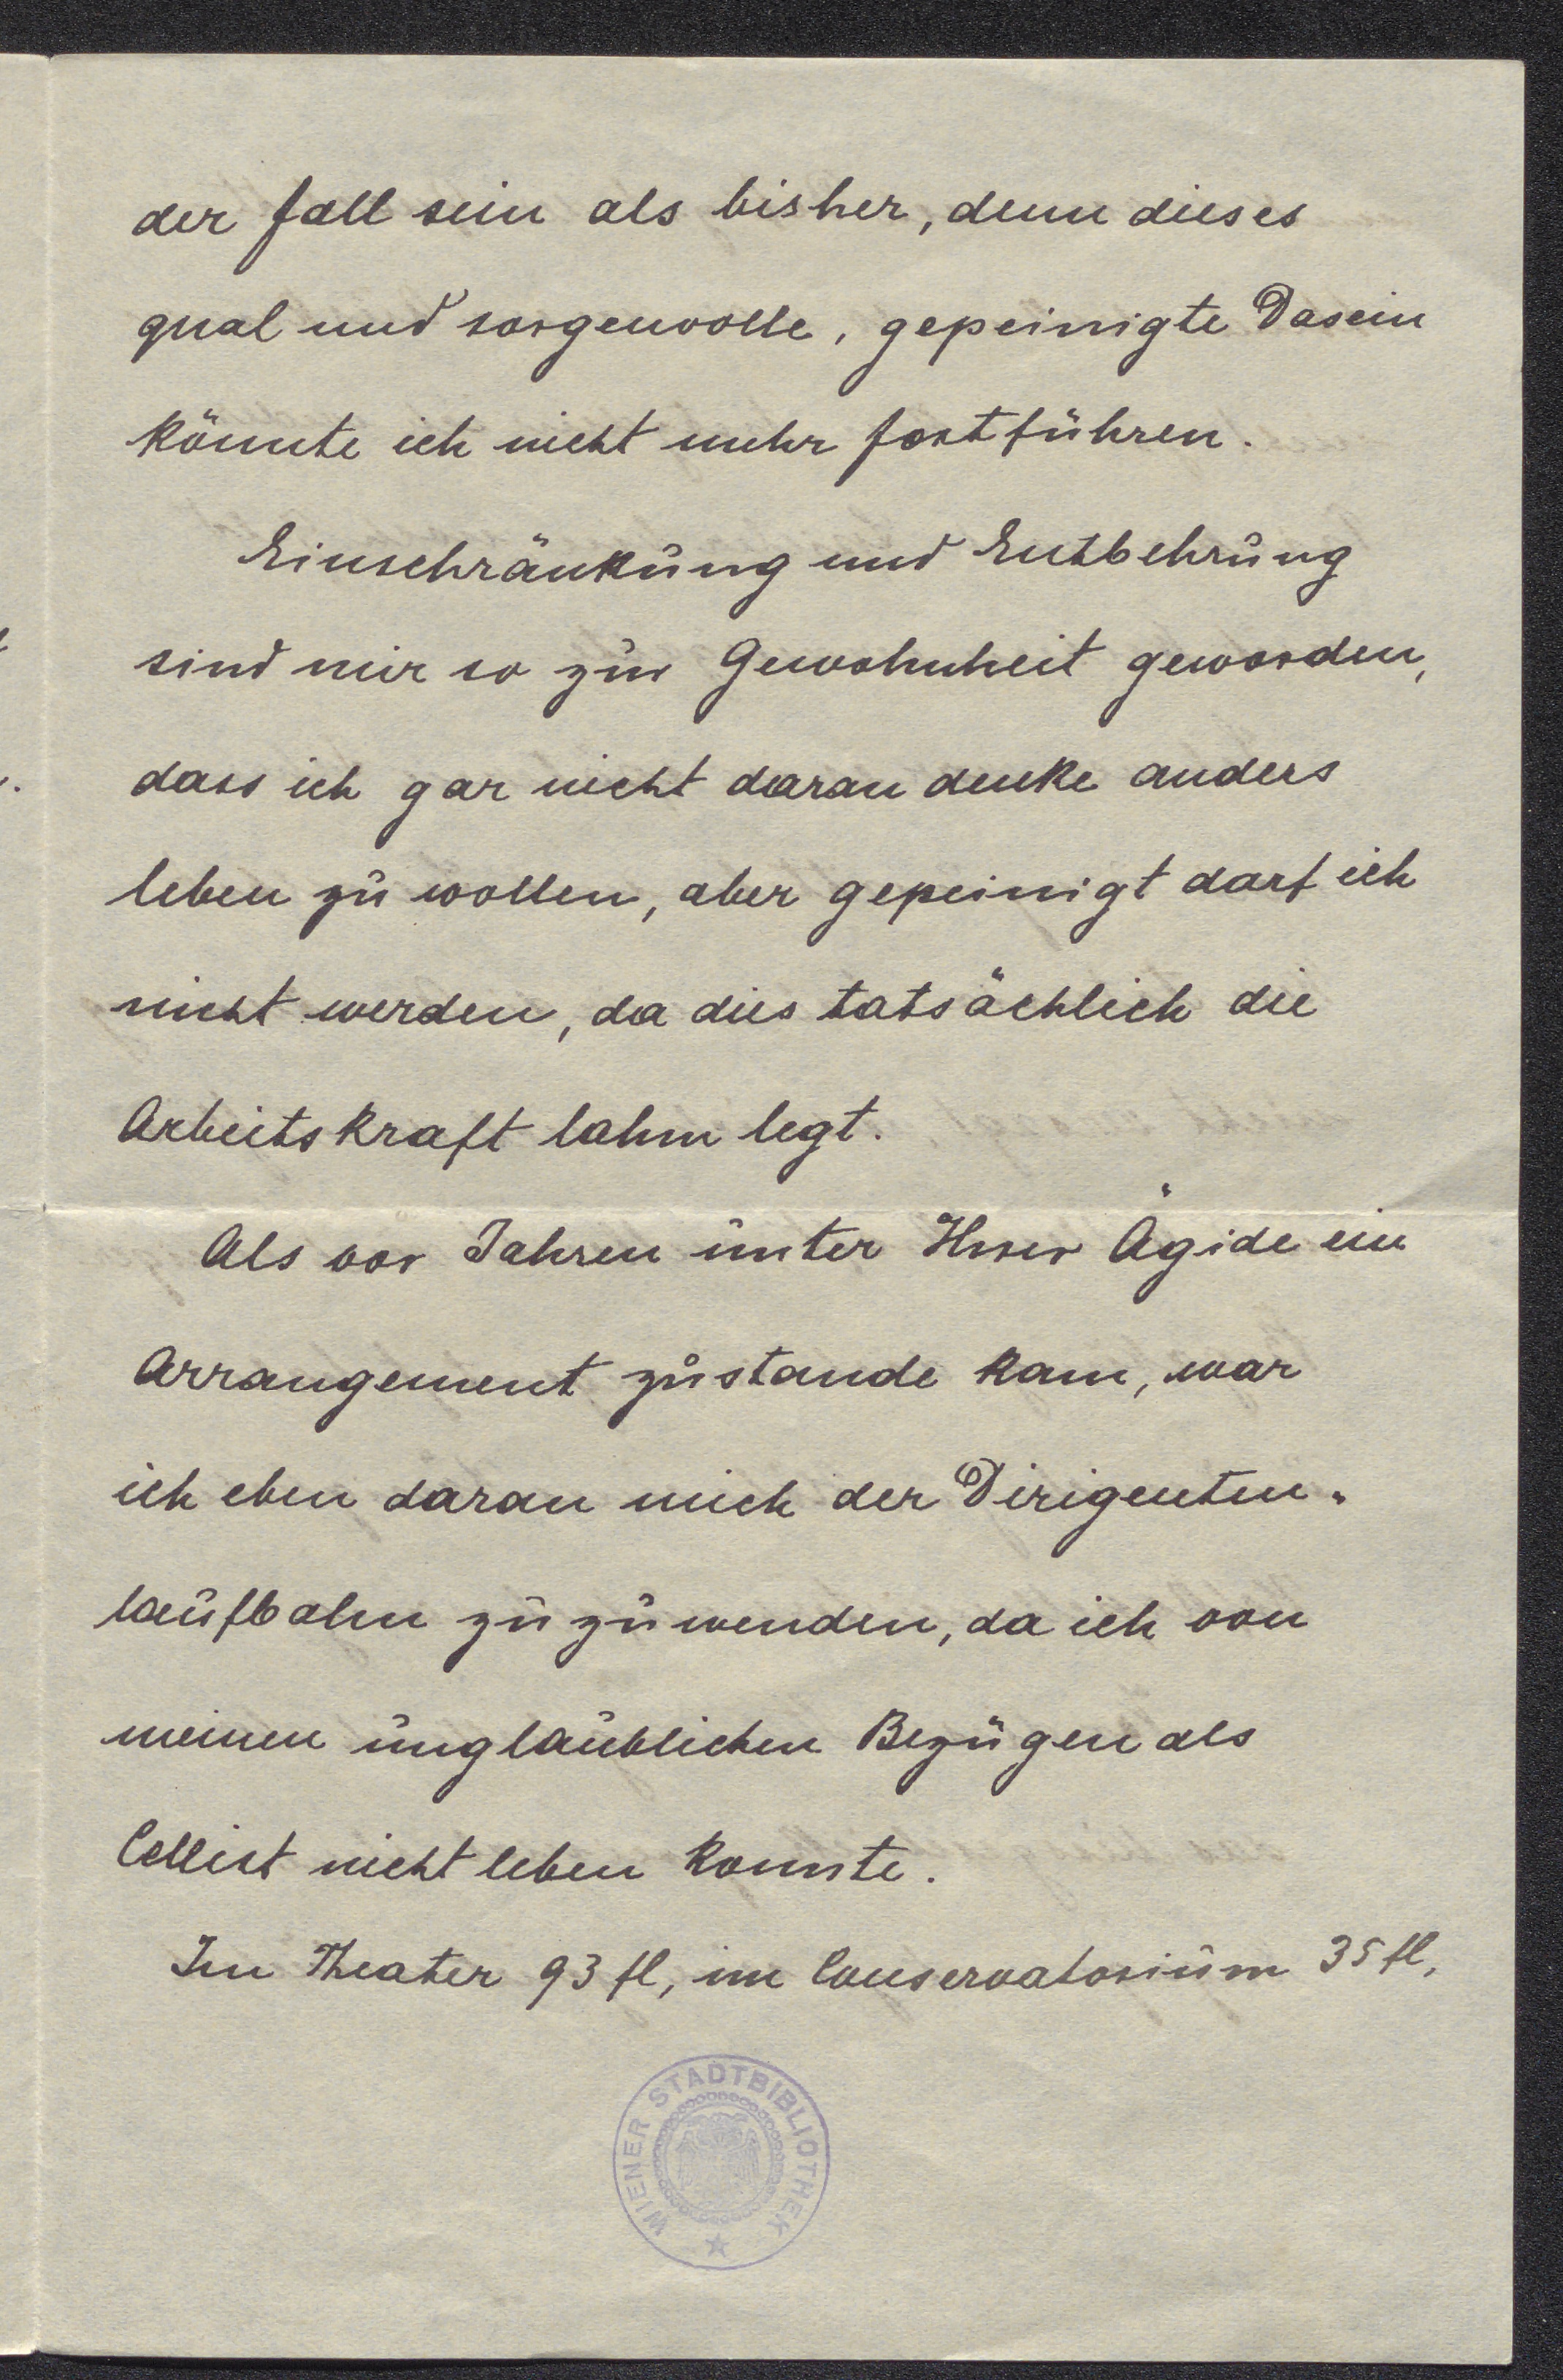 der Fall sein als bisher, denn dieses
qual und sorgenvolle, gepeinigte Dasein
könnte ich nicht mehr fortführen.
Einschränkung und Entbehrung
sind mir so zur Gewohnheit geworden,
dass ich gar nicht daran denke anders
leben zu wollen, aber gepeinigt darf ich
nicht werden, da dies tatsächlich die
Arbeitskraft lahm legt.
Als vor Jahren unter Ihrer Ägide ein
Arrangement zustande kam, war
ich eben daran mich der Dirigenten-
laufbahn zuzuwenden, da ich von
meinen unglaublichen Bezügen als
Cellist nicht leben konnte.
Im Theater 93 fl, im Conservatorium 35 fl,
WIENER STADTBIBLIOTHEK